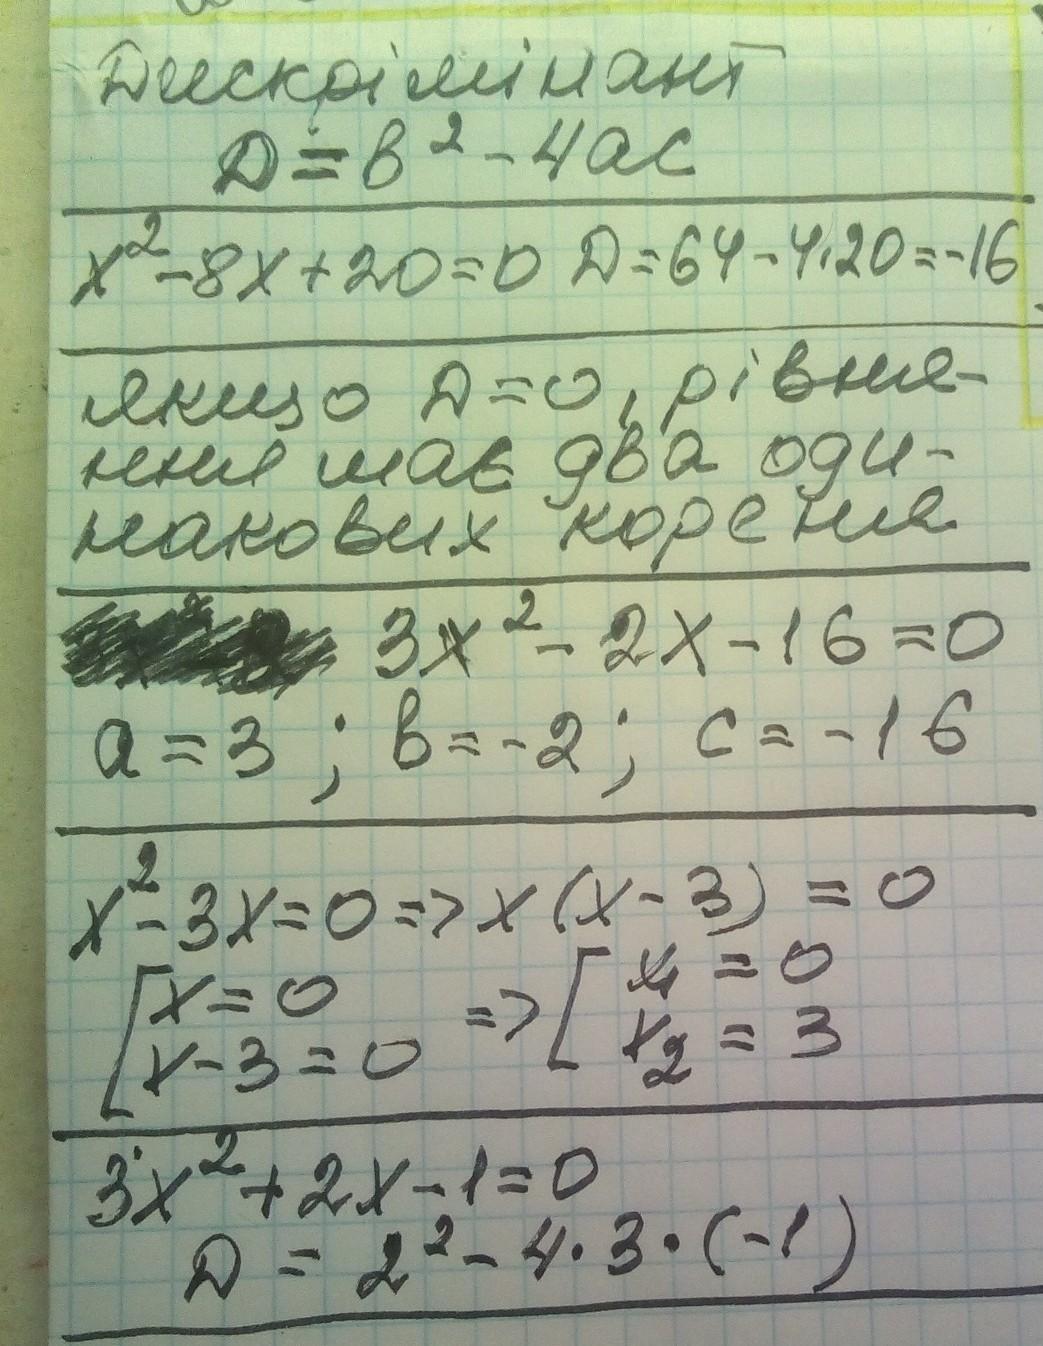 Дискрімінант
D = b² - 4ac
x² - 8x + 20 = 0 D = 64 - 4·20 = -16
якщо D = 0, рівня-
ння має два оди-
накових корення
3x² - 2x - 16 = 0
a = 3 ; b = -2 ; c = -16
x² - 3x = 0 => x (x - 3) = 0
[ x = 0 => [ x₁ = 0
x - 3 = 0 x₂ = 3
3x² + 2x - 1 = 0
D = 2² - 4 · 3 · (-1)